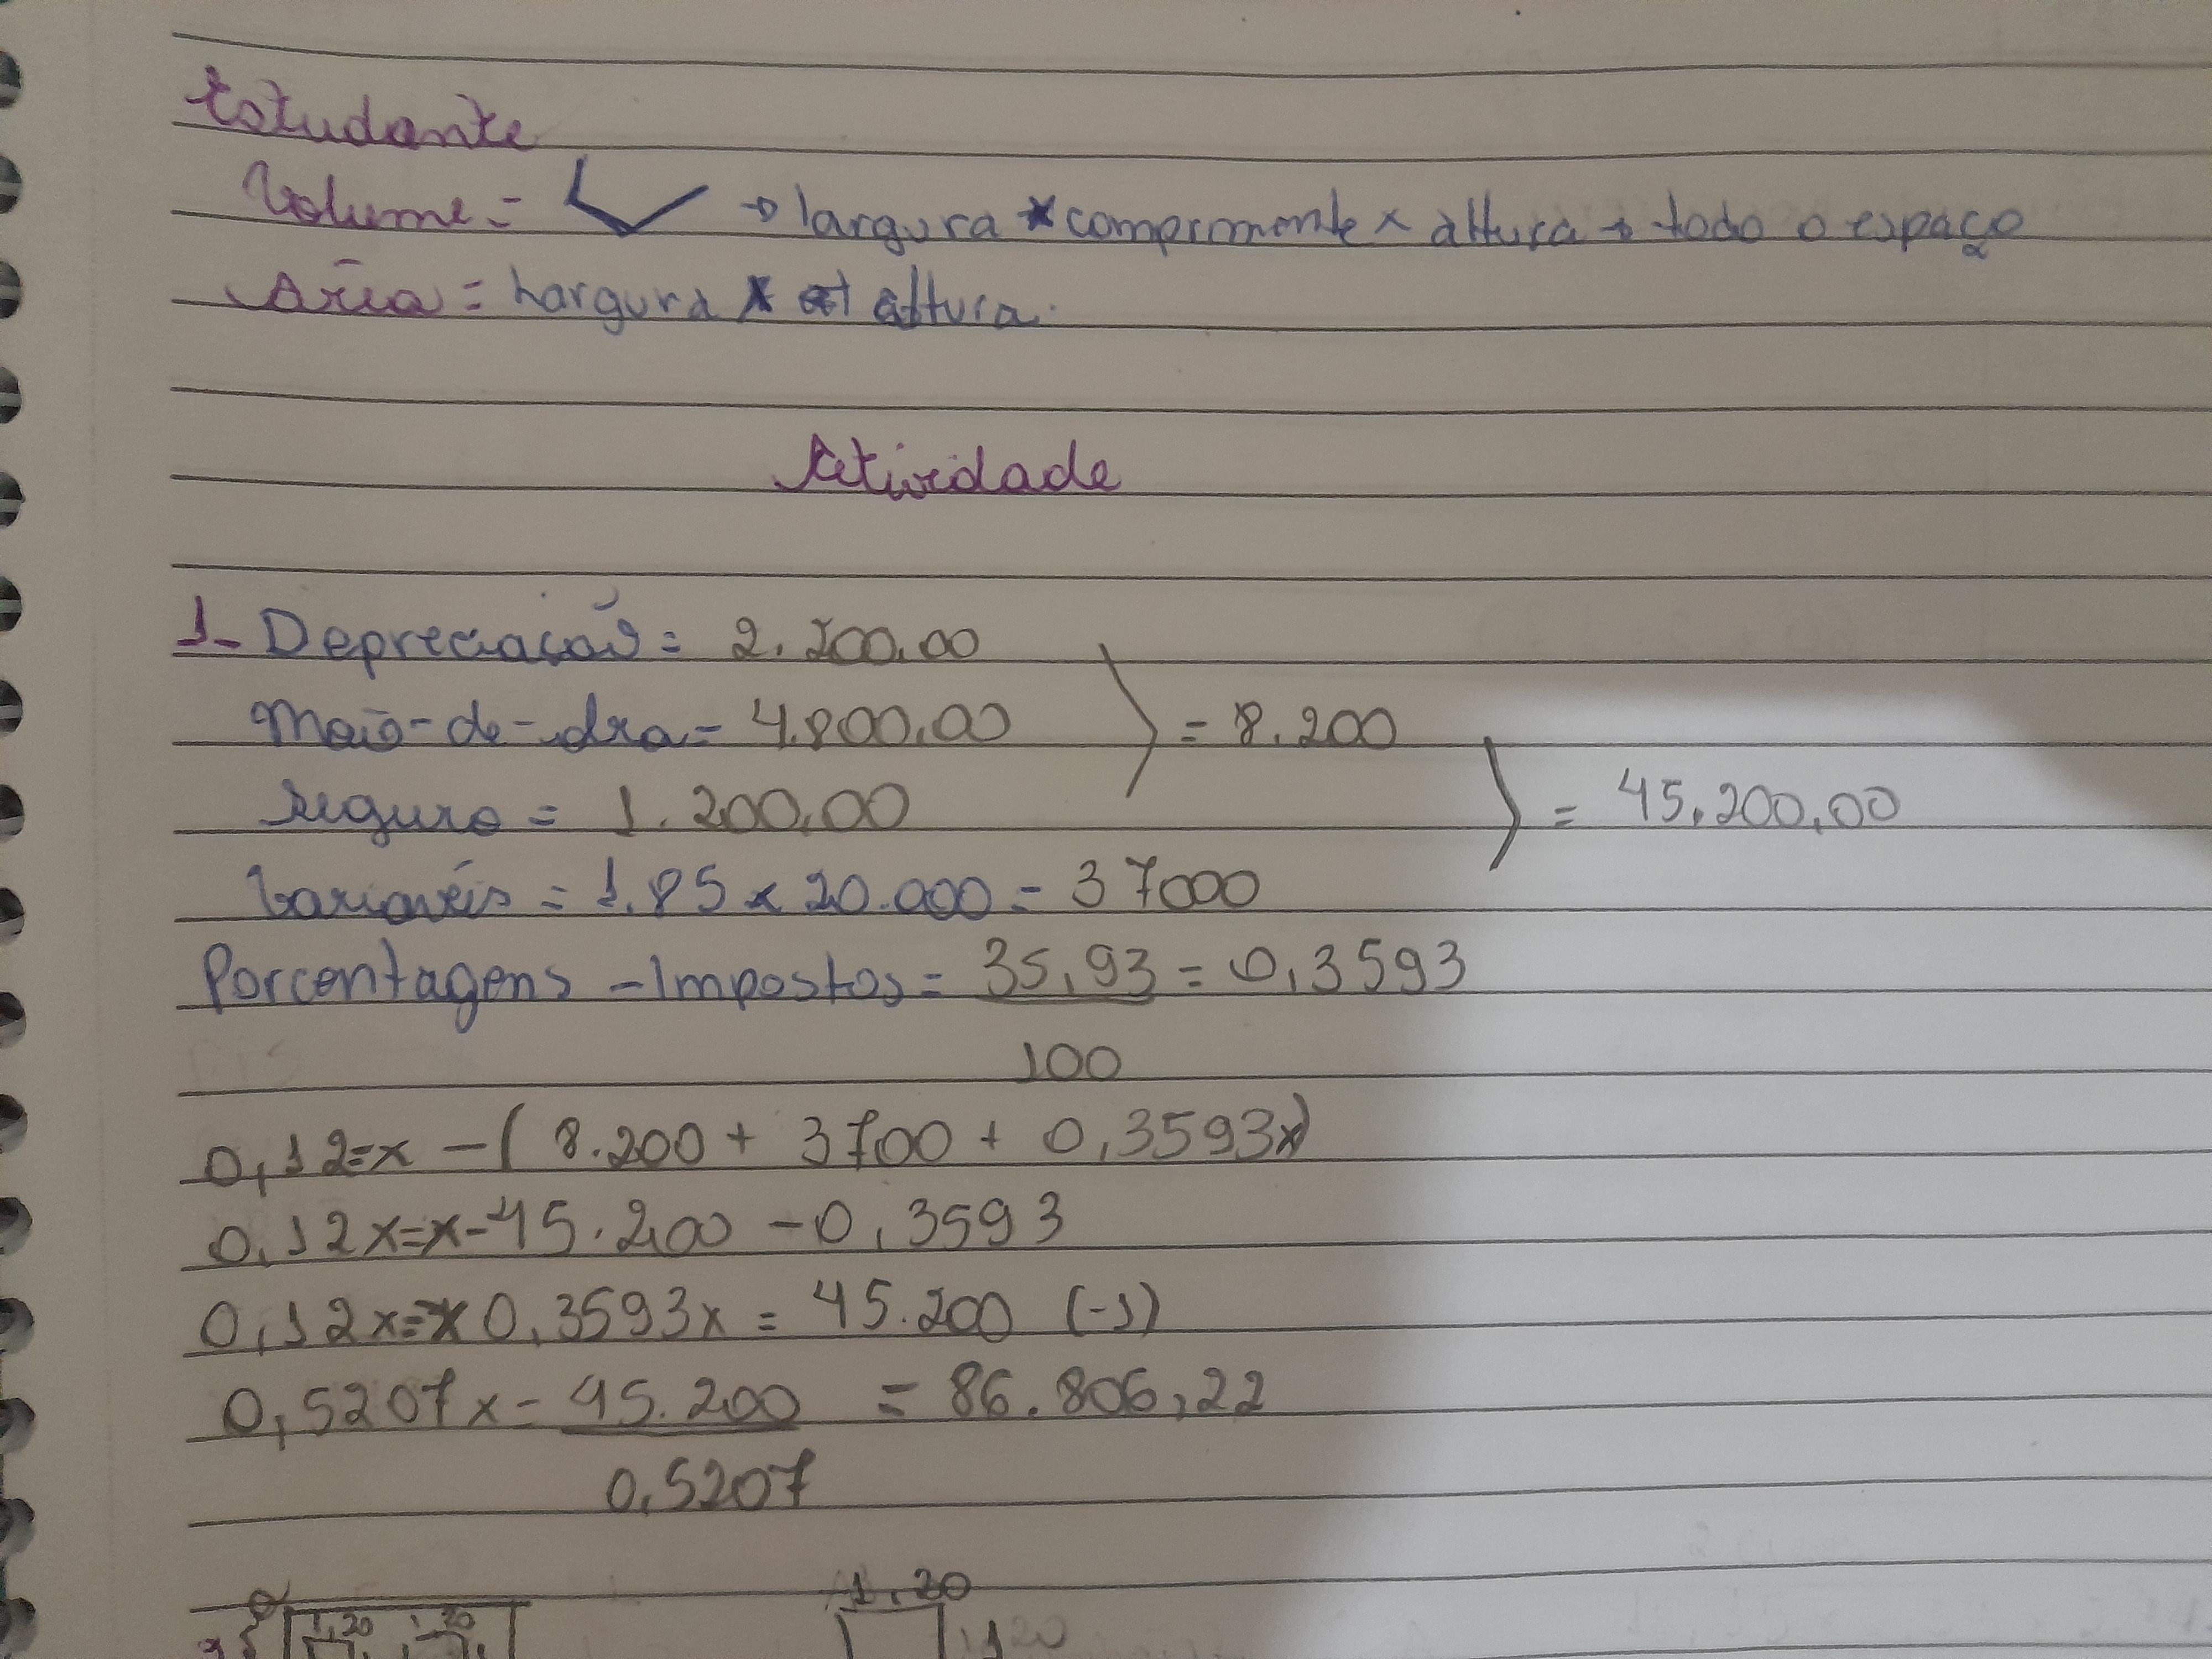 Estudante
Volume = → largura x comprimente x altura → todo o espaço
Área = Largura x altura.
Atividade
1- Depreciação = 2.200,00
Mão-de-obra = 4.800,00 = 8.200
Seguro = 1.200,00 = 45.200,00
Variavéis = 1.85 x 20.000 = 37000
Porcentagens - Impostos = 35,93 = 0,3593
100
0,12=x - ( 8.200 + 3700 + 0,3593x)
0,12x=x-45.200 - 0,3593
0,12x=x0,3593x = 45.200 (-1)
0,5207x = 45.200 = 86.806,22
0,5207
1,20
1,20 1,20 1,20